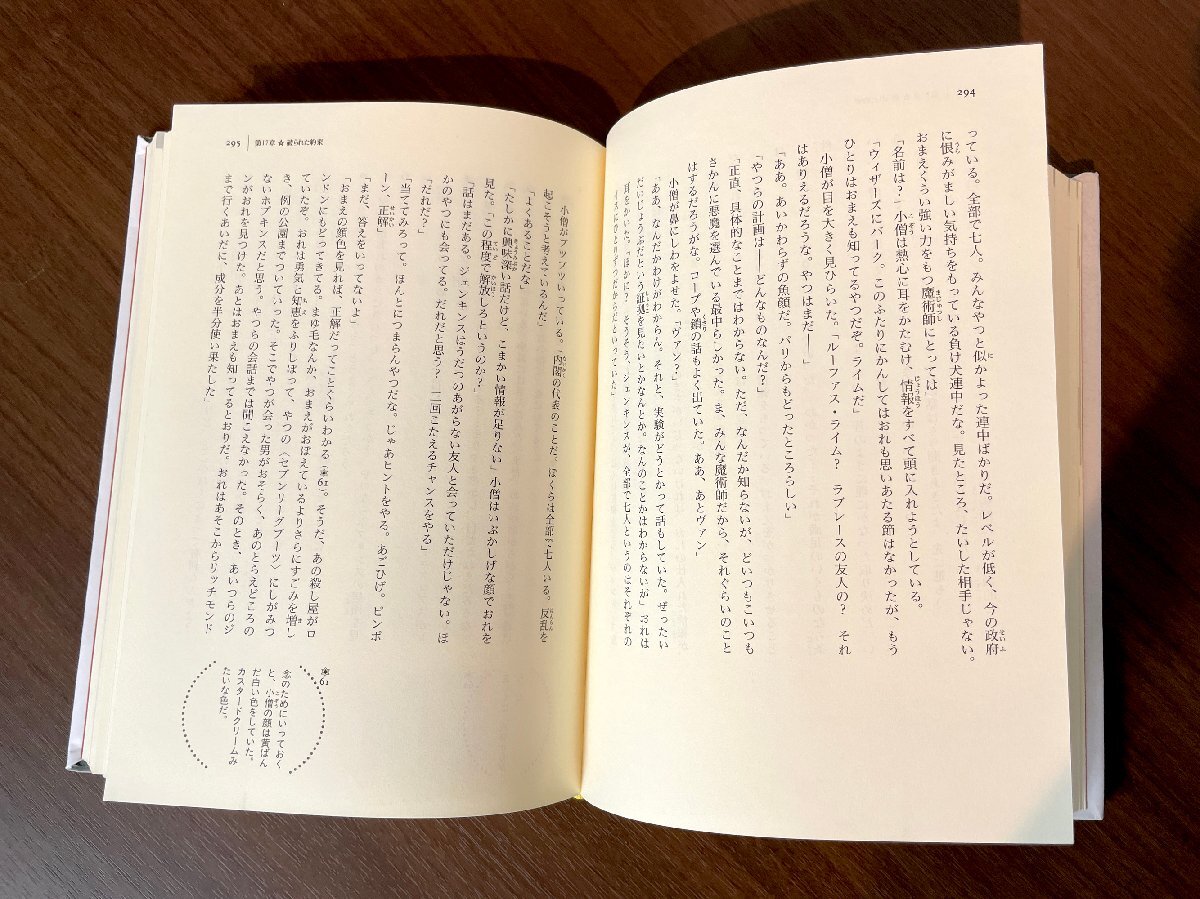 294
っている。全部で七人。みんなやつと似かよった連中ばかりだ。レベルが低く、今の政府
に恨みがましい気持ちをもっている負け犬連中だな。見たところ、たいした相手じゃない。
おまえくらい強い力をもつ魔術師にとっては」
「名前は?」小僧は熱心に耳をかたむけ、情報をすべて頭に入れようとしている。
「ウィザーズにバーク。このふたりにかんしてはおれも思いあたる節はなかったが、もう
ひとりはおまえも知ってるやつだぞ。ライムだ」
小僧が目を大きく見ひらいた。「ルーファス・ライム? ラブレースの友人の? それ
はありえるだろうな。やつはまだ——」
「ああ。あいかわらずの魚顔だ。パリからもどったところらしい」
「やつらの計画は——どんなものなんだ?」
「正直、具体的なことまではわからない。ただ、なんだか知らないが、どいつもこいつも
さかんに悪魔を選んでいる最中らしかった。ま、みんな魔術師だから、それぐらいのこと
はするだろうがな。ロープや鎖の話もよく出ていた。ああ、あとヴァン」
小僧が鼻にしわをよせた。「ヴァン?」
「ああ、なんだかわけがわからん。それと、実験がどうとかって話もしていた。ぜったい
だいじょうぶだという証拠を見たいとかなんとか。なんのことかはわからないが」おれは
耳をかいた。「ほかに? そうそう、ジェンキンスが、全部で七人というのはそれぞれの
イスにひとりずつだからだといっていた」
295 第17章 ☆ 破られた約束
小僧がブツブツいっている。「内閣の代表のことだ。ぼくらは全部で七人いる。反乱を
起こそうと考えているんだ」
「よくあることだな」
「たしかに興味深い話だけど、こまかい情報が足りない」小僧はいぶかしげな顔でおれを
見た。「この程度で解放しろというのか?」
「話はまだある。ジェンキンスはうだつのあがらない友人と会っていただけじゃない。ほ
かのやつにも会ってる。だれだと思う? 二回こたえるチャンスをやる」
「だれだ?」
「当ててみろって。ほんとにつまらんやつだな。じゃあヒントをやる。あごひげ。ピンポ
ーン、正解」
「まだ、答えをいってないよ」
「おまえの顔色を見れば、正解だってことくらいわかる(※61)。そうだ、あの殺し屋がロ
ンドンにもどってきてる。まゆ毛なんか、おまえがおぼえているよりさらにすごみを増し
ていたぞ。おれは勇気と知恵をふりしぼって、やつの〈セブンリーグブーツ〉にしがみつ
き、例の公園までついていった。そこでやつが会った男がおそらく、あのとらえどころの
ないホプキンスだと思う。やつらの会話までは聞こえなかった。そのとき、あいつらのジ
ンがおれを見つけた。あとはおまえも知ってるとおりだ。おれはあそこからリッチモンド
まで行くあいだに、成分を半分使い果たした」
※61
念のためにいっておく
と、小僧の顔は黄ばん
だ白い色をしていた。
カスタードクリームみ
たいな色だ。